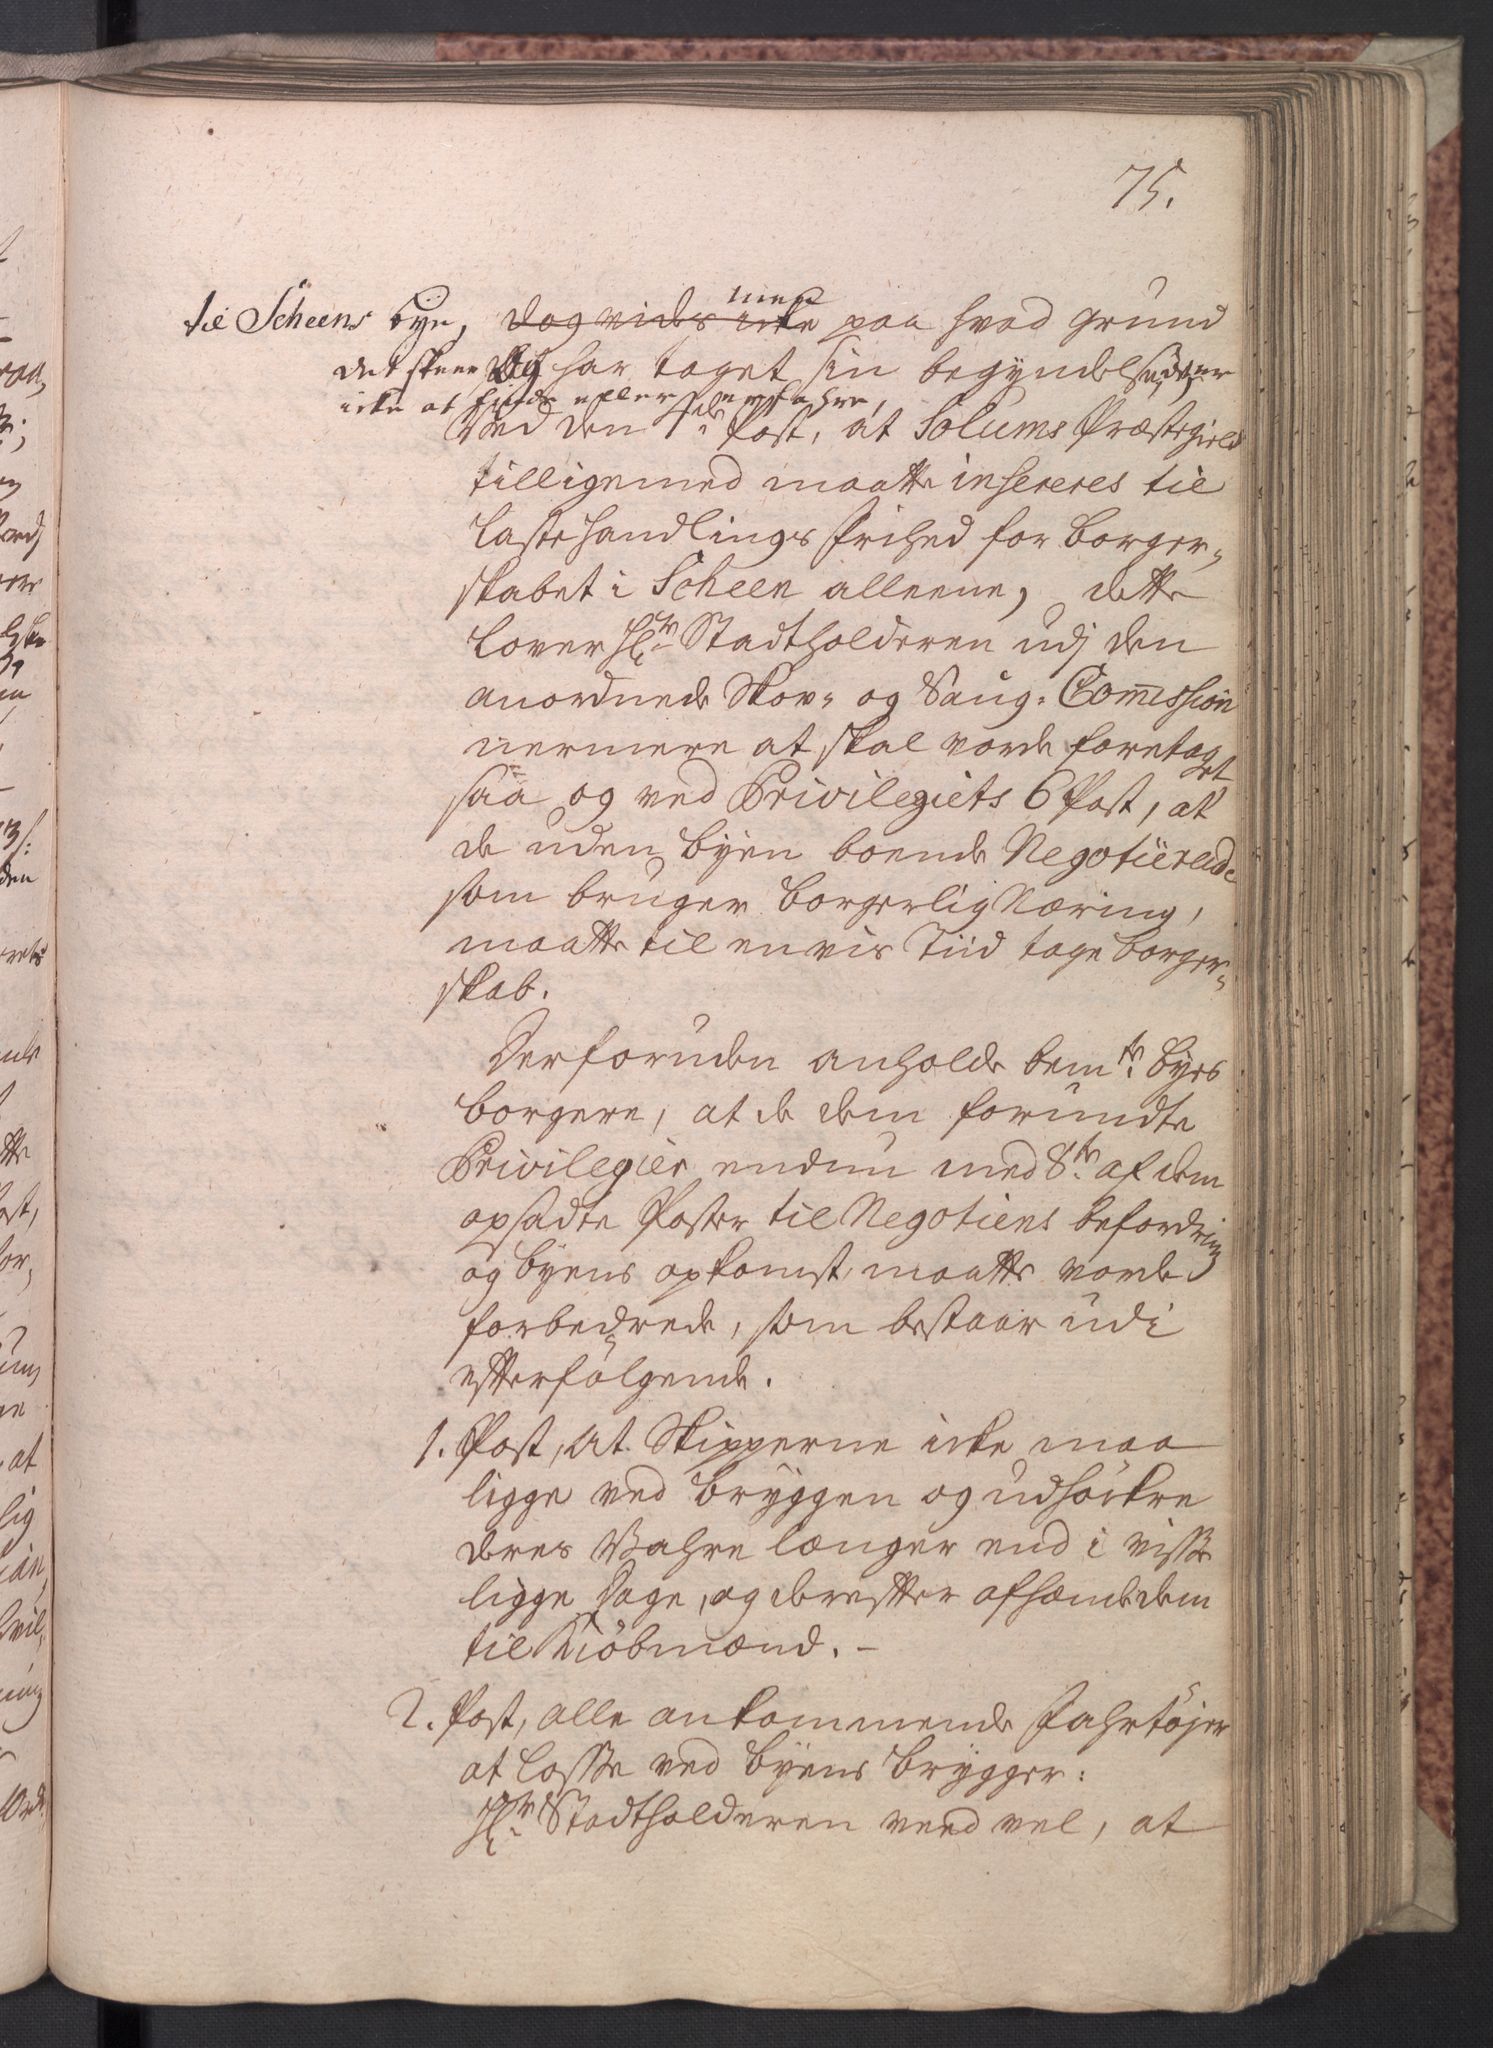 75.
til Scheens bÿe, dog vides icke men paa hvad grund
det skeer og har taget sin begyndelse, er
icke at finde eller erfahre,
Ved den 1ste Post, at Solums Præstegield
tilligemed maatte insereres til
Laste handlings Frihed for borger-
skabet i Scheen alleene, dette
lover Hr Stadtholderen udj den
anordnede Skov- og Saug-Commission
nermere at skal vorde foretaget
saa og ved Privilegiets 6 Post, at
de uden bÿen boende Negotierende
som bruger borgerlig Næring,
maatte til en vis Tiid tage borger-
skab.
Derforuden anholde bemte bÿes
borgere, at de dem forundte
Privilegier endnu med 8te af dem
opsadte Poster til Negotiens befordring
og bÿens opkomst, maatte vorde
forbedrede, som bestaar udi
efterfølgende.
1. Post, At Skipperne icke maa
ligge ved bryggen og udhöckre
deres Vahre længer end i visse
ligge dage, og derefter afhænde dem
til Kiöbmænd. –
2. Post, alle ankommende Fahrtöjer
at losse ved bÿens brygger:
Hr Stadtholderen veed vel, at